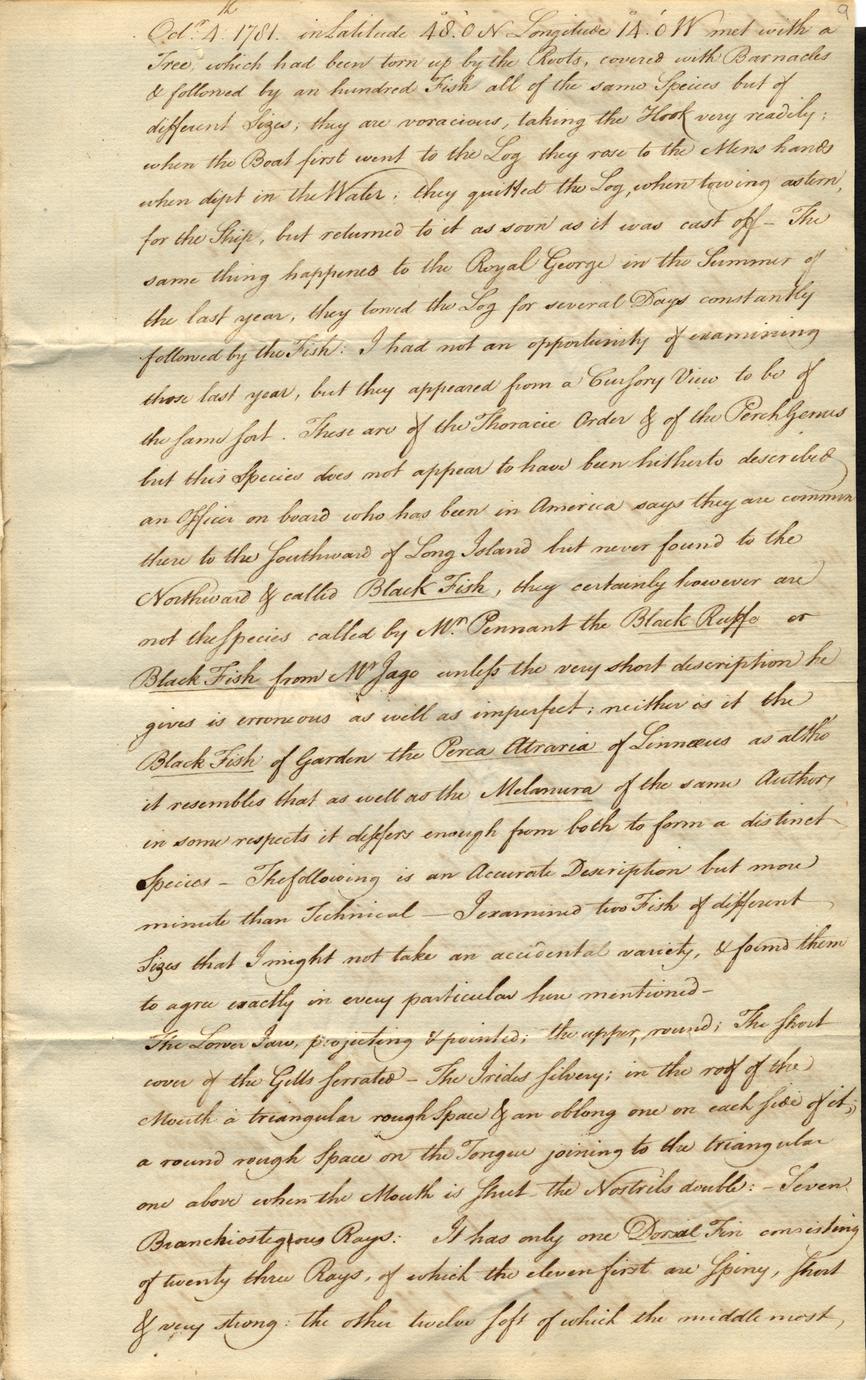 9
Octr. 4th. 1781. in Latitude 48°.0 N Longitude 14°.0 W met with a
Tree, which had been torn up by the Roots, covered with Barnacles
& followed by an hundred Fish all of the same Species but of
different Sizes; they are voracious, taking the Hook very readily;
when the Boat first went to the Log they rose to the Mens hands
when dipt in the Water; they quitted the Log, when towing astern,
for the Ship, but returned to it as soon as it was cast off – The
same thing happened to the Royal George in the Summer of
the last year, they towed the Log for several Days constantly
followed by the Fish: I had not an opportunity of examining
those last year, but they appeared from a Cursory View to be of
the same sort. These are of the Thoracic Order & of the Perch Genus
but this Species does not appear to have been hitherto described
an Officer on board who has been in America says they are common
there to the Southward of Long Island but never found to the
Northward & called Black Fish, they certainly however are
not the Species called by Mr. Pennant the Black Ruffe or
Black Fish from Mr Jago unless the very short description he
gives is erroneous as well as imperfect; neither is it the
Black Fish of Garden the Perca Atraria of Linnæus as altho'
it resembles that as well as the Melanura of the same Author,
in some respects it differs enough from both to form a distinct
Species – The following is an Accurate Description but more
minute than Technical – I examined two Fish of different
Sizes that I might not take an accidental variety, & found them
to agree exactly in every particular here mentioned –
The Lower Jaw, projecting & pointed; the upper, round; The short
cover of the Gills serrated – The Irides silvery; in the roof of the
Mouth a triangular rough Space & an oblong one on each side of it;
a round rough Space on the Tongue joining to the triangular
one above when the Mouth is shut – the Nostrils double: – Seven
Branchiostegous Rays: It has only one Dorsal Fin consisting
of twenty three Rays, of which the eleven first are Spiny, short
& very strong: the other twelve soft of which the middlemost,